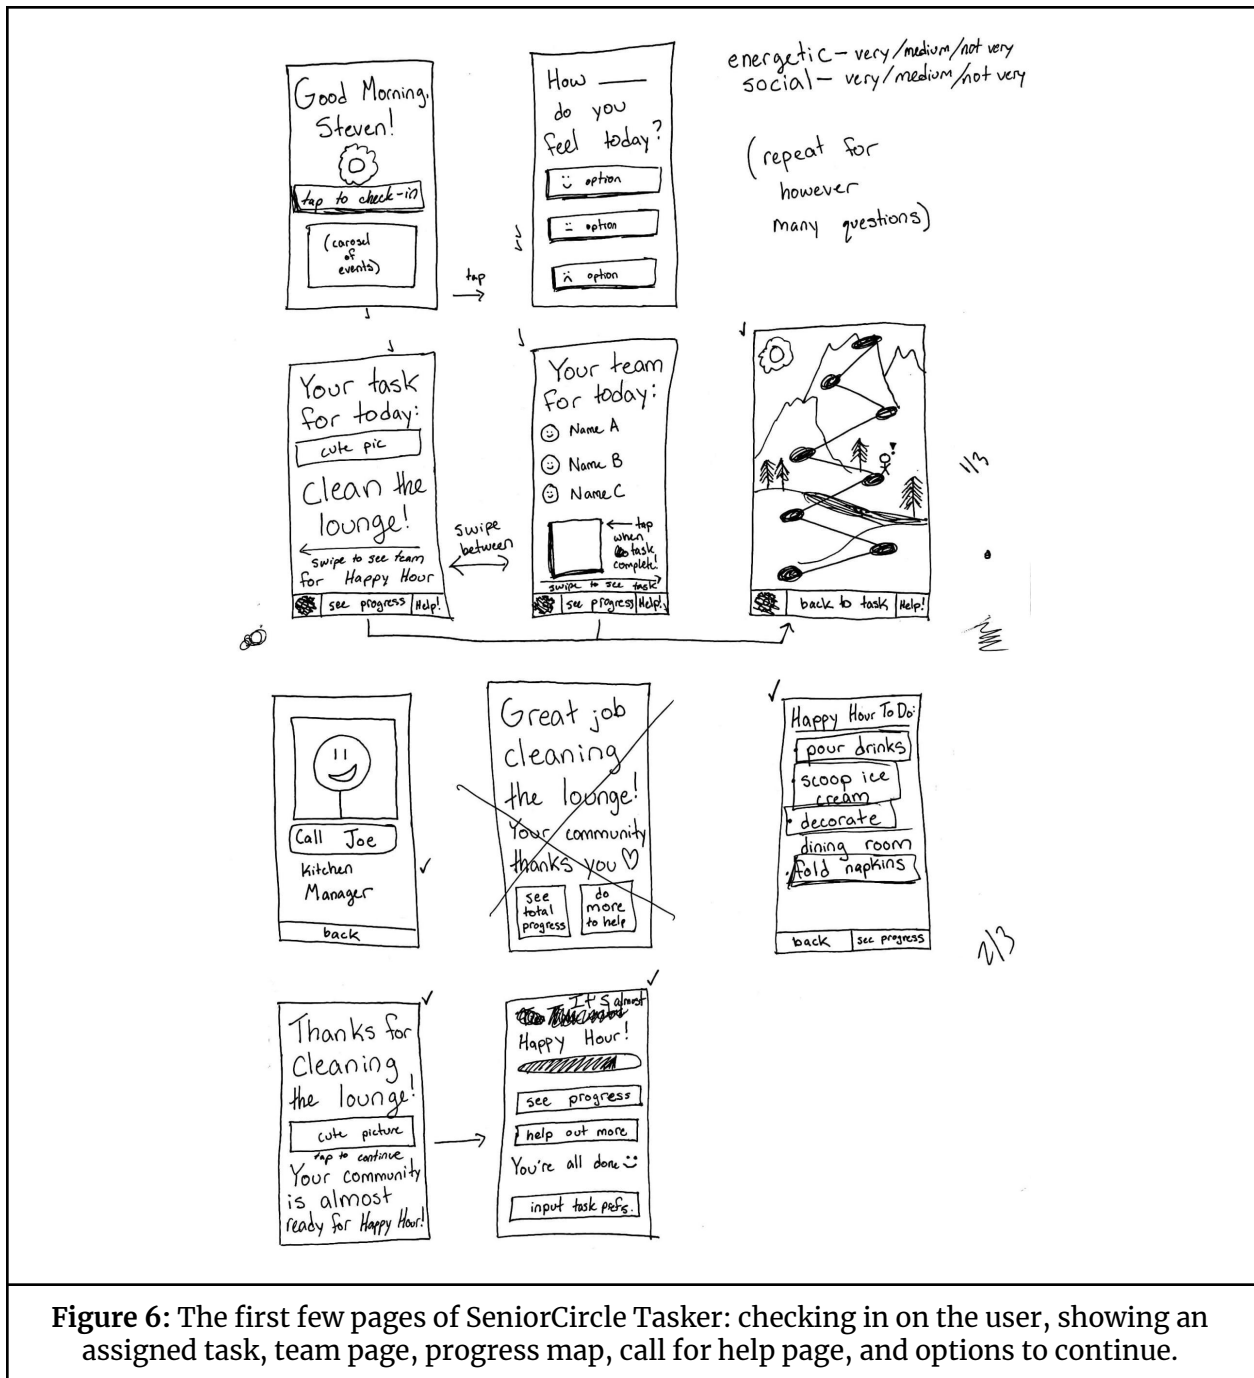 Good Morning,
Steven!
tap to check-in
(carosel
of
events)
tap
How ____
do you
feel today?
option
option
option
energetic – very/medium/not very
social – very/medium/not very
(repeat for
however
many questions)
Your task
for today:
cute pic
Clean the
lounge!
swipe to see team
for Happy Hour
see progress
Help!
swipe
between
Your team
for today:
Name A
Name B
Name C
tap
when
task
complete!
swipe to see task
see progress
Help!
back to task
Help!
1/3
Call Joe
Kitchen
Manager
back
Great job
cleaning
the lounge!
Your community
thanks you ♡
see
total
progress
do
more
to help
Happy Hour To Do:
• pour drinks
• scoop ice
cream
• decorate
dining room
• fold napkins
back
see progress
2/3
Thanks for
cleaning
the lounge!
cute picture
tap to continue
Your community
is almost
ready for Happy Hour!
It's almost
Happy Hour!
see progress
help out more
You're all done
input task prefs.
Figure 6: The first few pages of SeniorCircle Tasker: checking in on the user, showing an
assigned task, team page, progress map, call for help page, and options to continue.